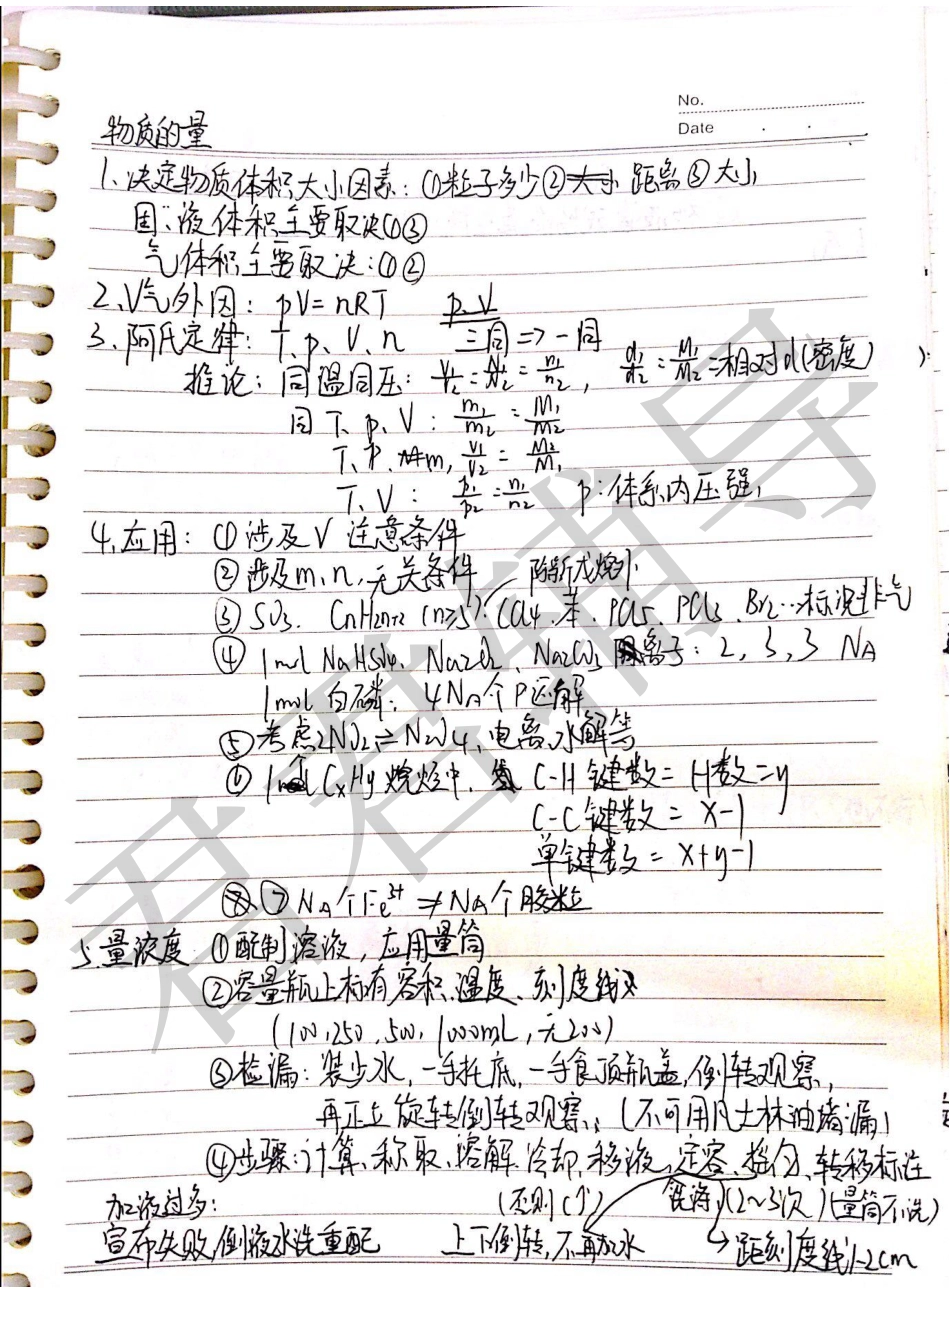 No.
Date
物质的量
1、决定物质体积大小因素：①粒子多少②距离③大小
固、液体积主要取决①③
气体积主要取决：①②
2、V气外因：pV=nRT p、V
3、阿氏定律：T、p、V、n 三同=>一同
推论：同温同压：V₁/V₂=N₁/N₂=n₁/n₂，d₁/d₂=M₁/M₂=相对d(密度)
同T、p、V：m₁/m₂=M₁/M₂
T、P、m，V₁/V₂=M₂/M₁
T、V：p₁/p₂=n₁/n₂ p：体系内压强
4、应用：①涉及V 注意条件
②涉及m、n，无关条件 除新戊烷外
③SO₃、CnH2n+2(n≥5)、CCl4、苯、PCl5、PCl3、Br2…标况非气
④1mol NaHSO4、Na2O2、Na2CO3 离子：2，3，3 NA
1mol 白磷：4NA个P
⑤考虑2NO2⇌N2O4、电离、水解等
⑥1个CxHy烷烃中，C-H键数=H数=y
C-C键数=x-1
单键数=x+y-1
⑦NA个Fe³⁺≠NA个胶粒
5、量浓度 ①配制溶液，应用量筒
②容量瓶上标有容积、温度、刻度线
(100，250，500，1000mL，无200)
③检漏：装少水，一手托底，一手食顶瓶盖，倒转观察，
再正立旋转倒转观察，(不可用凡士林油堵漏)
④步骤：计算、称取、溶解、冷却、移液、定容、摇匀、转移标注
加液过多： (否则c↑) 洗涤(2~3次)(量筒不洗)
宣布失败，倒液水洗重配 上下倒转，不再加水 距刻度线1-2cm
君君辅导